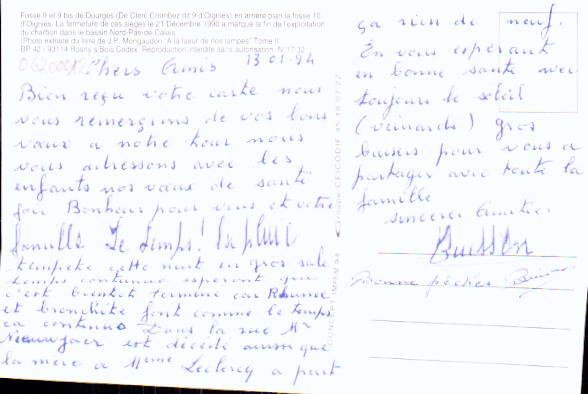 Fosse 9 et 9 bis de Dourges (De Clerc Crombez dit 9 d'Oignies) en arrière plan la fosse 10
d'Oignies. La fermeture de ces sièges le 21 Décembre 1990 a marqué la fin de l'exploitation
du charbon dans le bassin Nord-Pas-de-Calais
(Photo extraite du livre de J.P. Mongaudon "A la lueur de nos lampes" Tome II
BP 42 - 93114 Rosny s/Bois Cedex. Reproduction interdite sans autorisation. N° 17/32
Chers Amis 13-01-94
Bien reçu votre carte nous
vous remercions de vos bons
vœux a notre tour nous
vous adressons avec les
enfants nos vœux de santé
joie Bonheur pour vous et votre
famille Le temps! la pluie
tempête cette nuit en gros sale
temps continue esperont que
c'est bientôt terminé car Rhume
et bronchite font comme le temps
ca continue Dans la rue Mr
est décédé aussi que
la mere a Meme Leclercq a part
ça rien de neuf.
En vous esperant
en bonne santé avec
toujours le soleil
(veinards) gros
baisers pour vous a
partager avec toute la
famille
sincères Amitiés
Buisson
Bonne